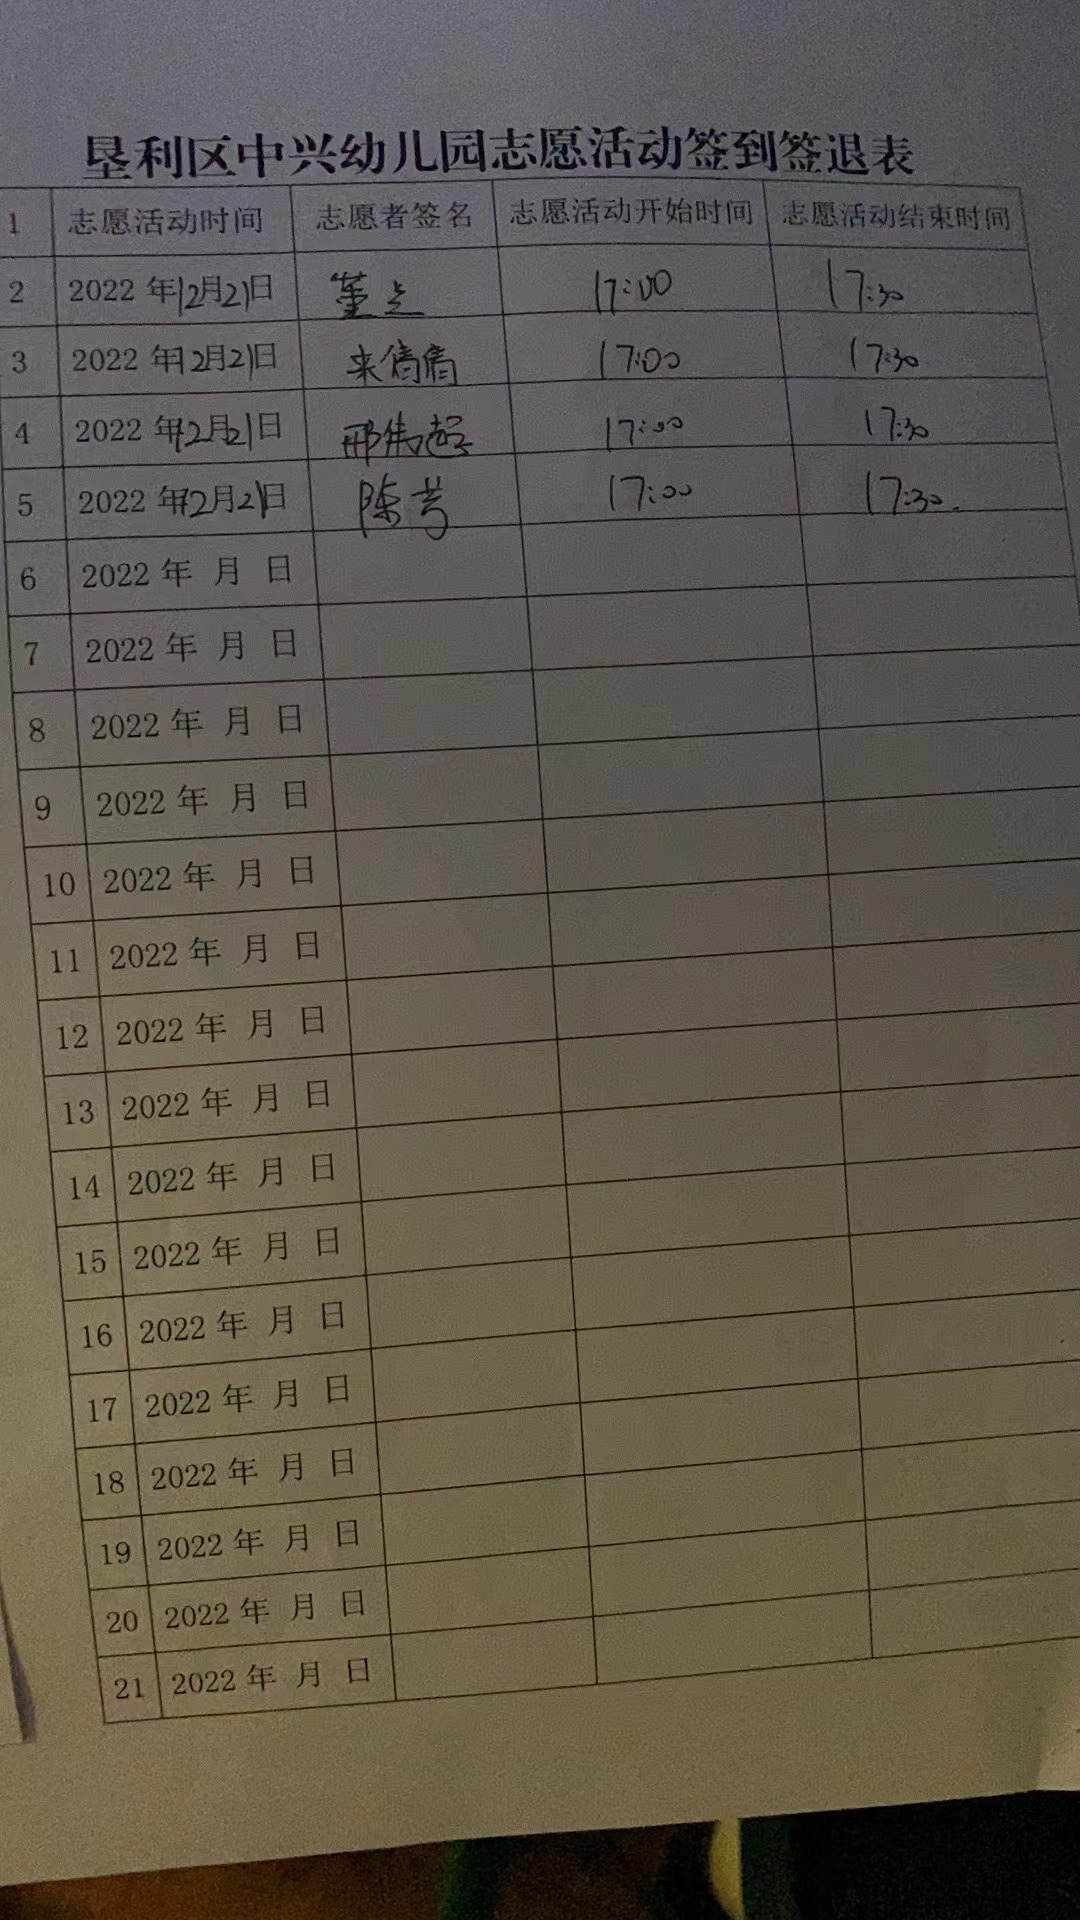 垦利区中兴幼儿园志愿活动签到签退表
1 志愿活动时间 志愿者签名 志愿活动开始时间 志愿活动结束时间
2 2022年12月21日 董 17:00 17:30
3 2022年12月21日 来倩倩 17:00 17:30
4 2022年12月21日 邢 超 17:00 17:30
5 2022年12月21日 陈芳 17:00 17:30.
6 2022年 月 日
7 2022年 月 日
8 2022年 月 日
9 2022年 月 日
10 2022年 月 日
11 2022年 月 日
12 2022年 月 日
13 2022年 月 日
14 2022年 月 日
15 2022年 月 日
16 2022年 月 日
17 2022年 月 日
18 2022年 月 日
19 2022年 月 日
20 2022年 月 日
21 2022年 月 日